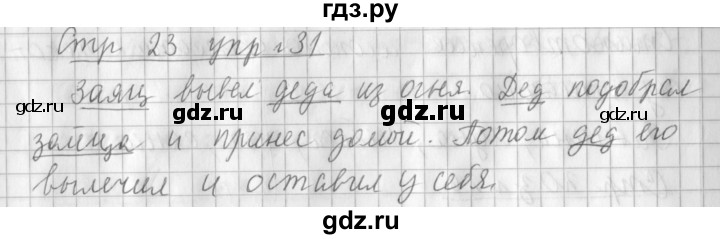 гдз.ру
Стр 23 упр. 31
Заяц вывел деда из огня. Дед подобрал
зайца и принес домой. Потом дед его
вылечил и оставил у себя.
gdz.ru gdz.ru gdz.ru
gdz.ru gdz.ru
gdz.ru